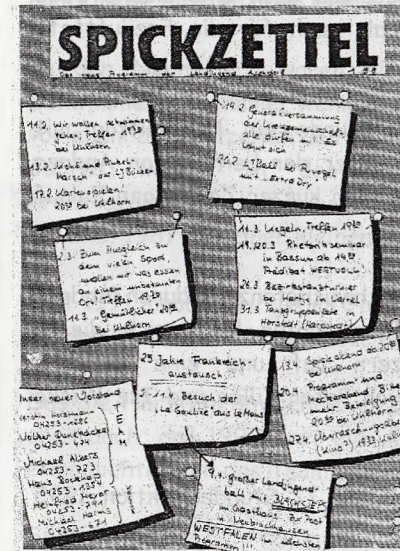 SPICKZETTEL
Das neue Programm der Landjugend
11.2. Wir wollen schwimmen
gehen, Treffen 19³⁰
bei Uhlhorn
13.2.
17.2. Kartenspielen
20³⁰ bei Uhlhorn
19.2. Generalversammlung
der Kreisgemeinschaft,
alle dürfen mit! Es
lohnt sich
20.2. LJ Ball bei Puvogel
mit Extra Dry
2.3. Zum Ausgleich zu
dem vielen Sport
wollen wir was essen
an einem unbekannten
Ort! Treffen 19³⁰
16.3. Gemütlicher 20³⁰
bei Uhlhorn
11.3. Kegeln, Treffen 19³⁰
19./20.3 Rhetorikseminar
in Bassum ab 14³⁰
Prädikat WERTVOLL!
26.3. Bezirksturnier
bei Hartje in Varrel
31.3 Tanzgruppenfete in
25 Jahre Frankreich-
austausch
2.-11.4. Besuch der
"La Gauline" aus Le Mans
13.4. Spieleabend ab 20³⁰
bei Uhlhorn
20.4. Programm und
Meckerabend, Bitte
mehr Beteiligung
20³⁰ bei Uhlhorn
27.4. Überraschungsfilm
(Kino!) 19³⁰ Uhlhorn
Unser neuer Vorstand
TEAM
Kerstin
04253-
Volker
04253-474
Michael Alberts
04253-723
Hans
04253-1354
Heinfried Meyer
04253-794
Michael Harms
04253-671
9.4. großer Landjugend-
ball mit
im Gasthaus zur Post
in
WESTFALEN im nächsten
Programm!!!